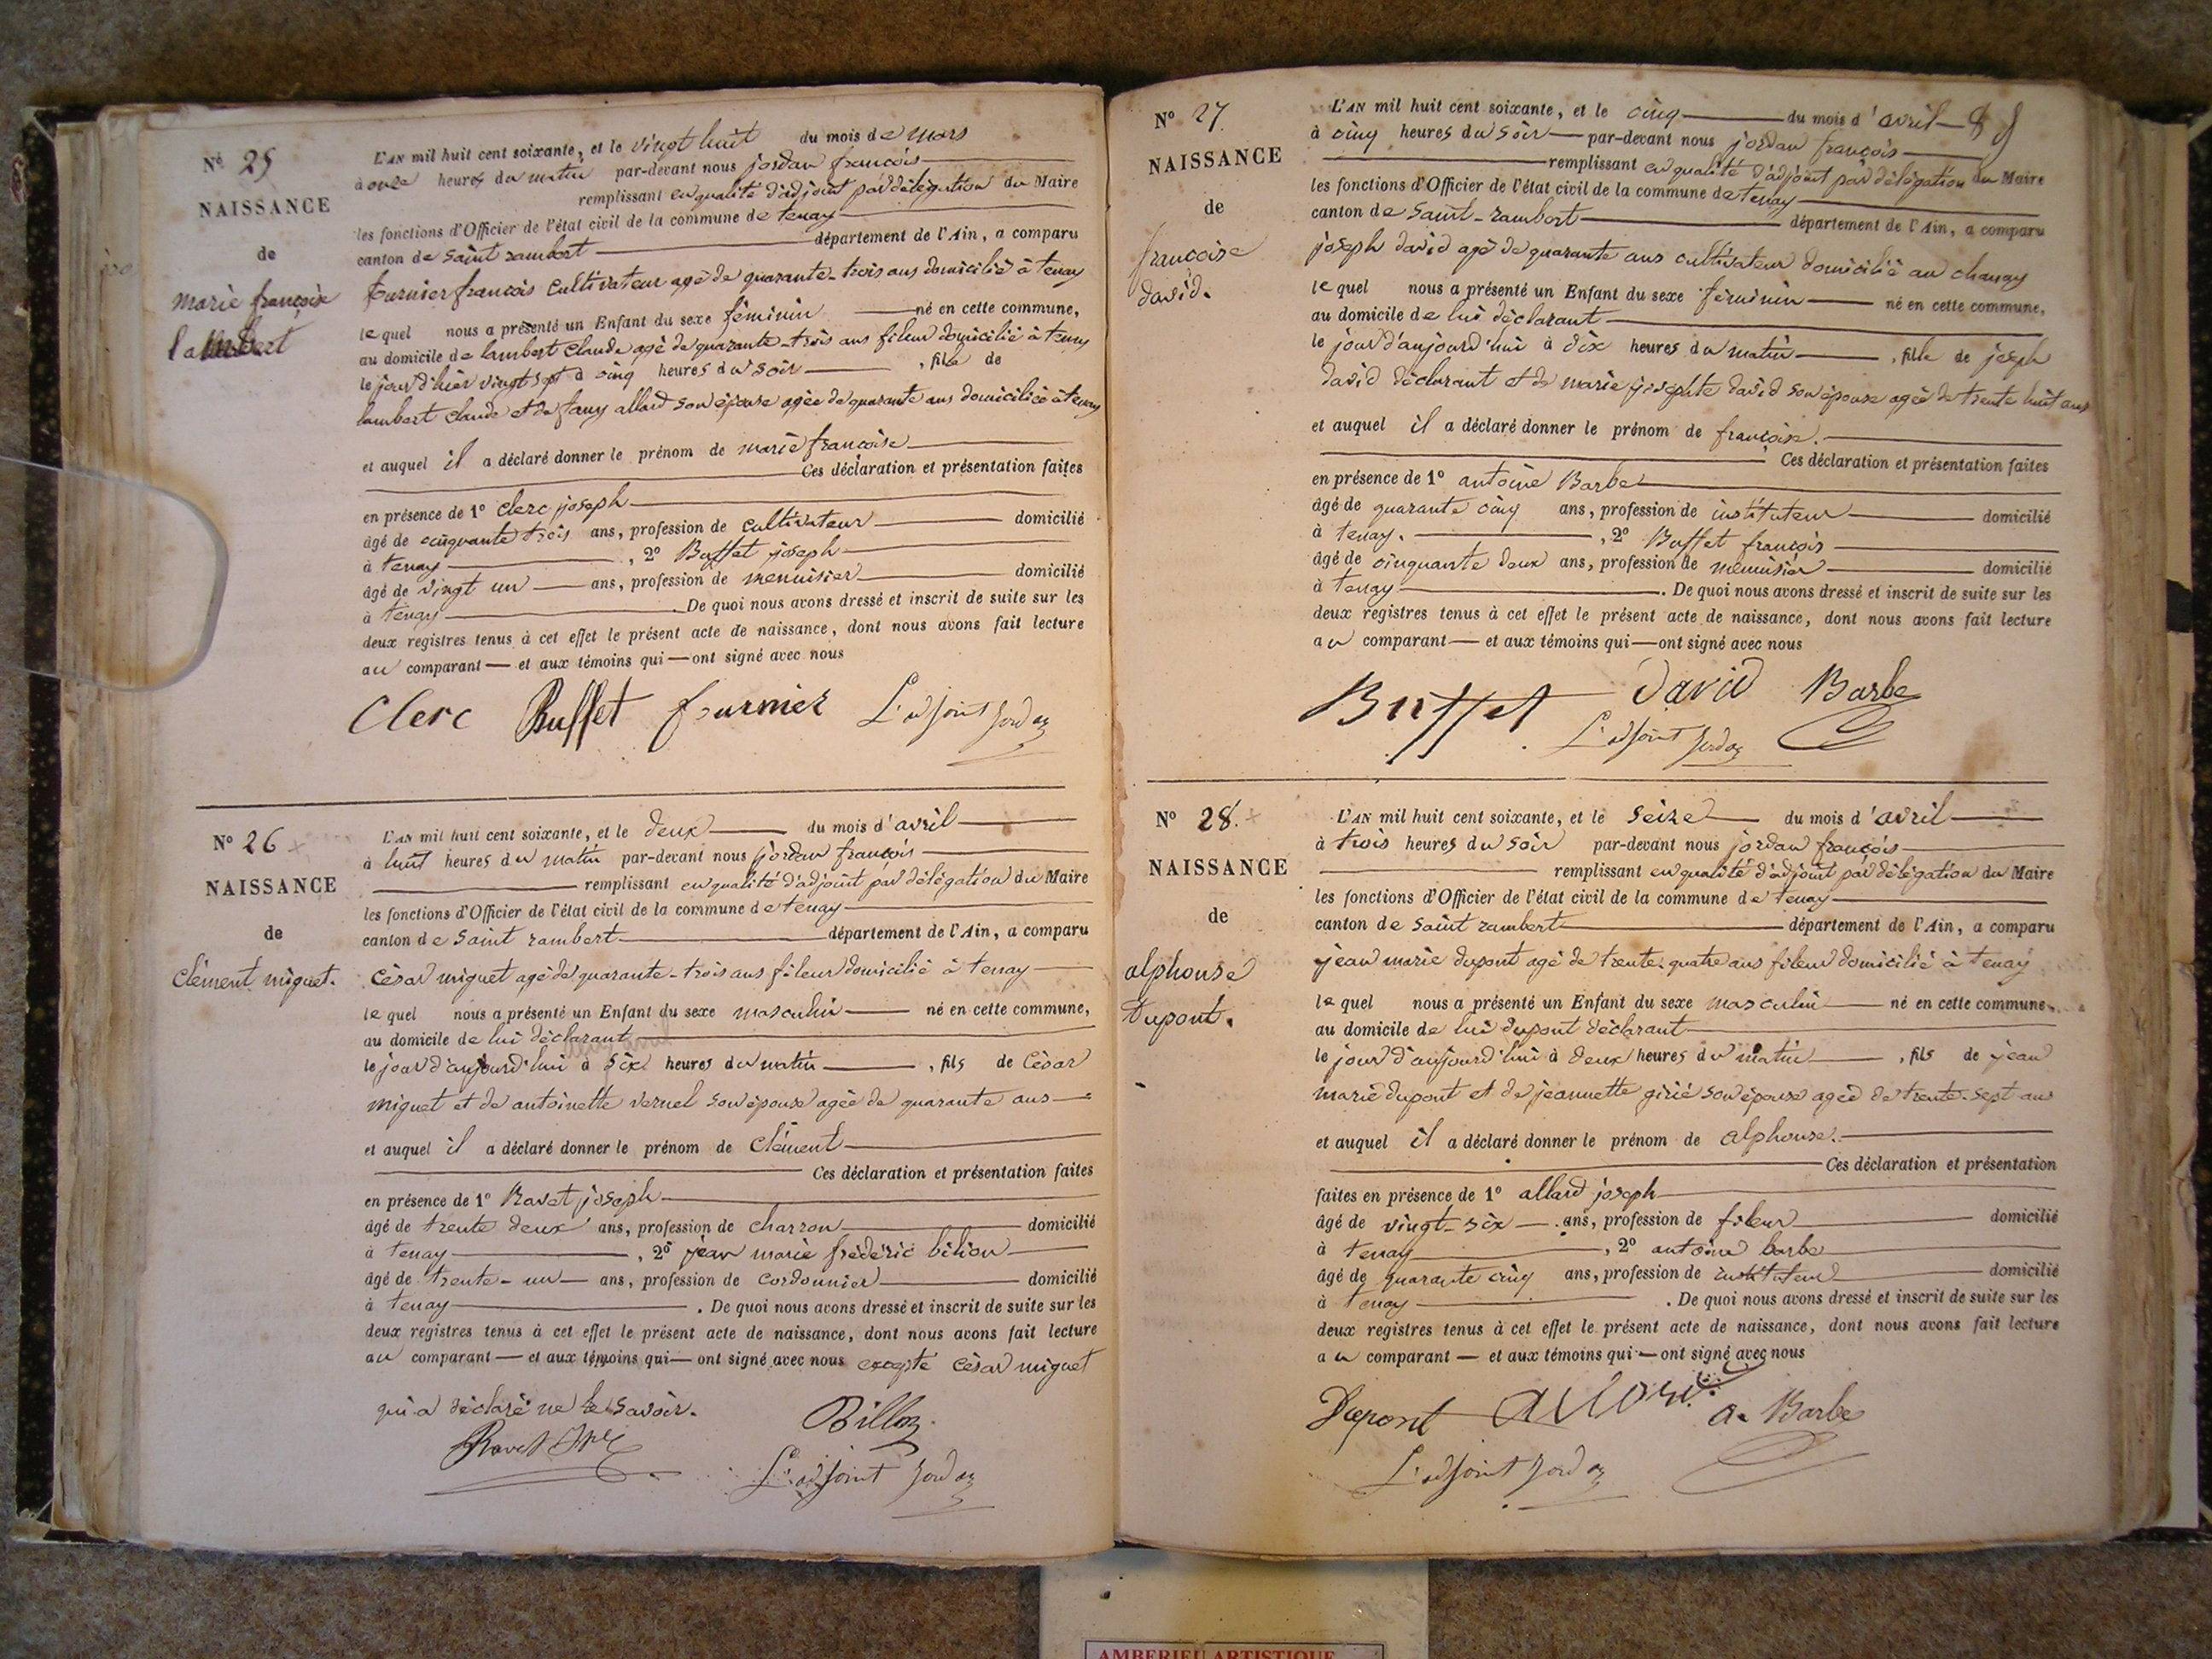 Nº 25
NAISSANCE
de
marie françoise
lambert
L'AN mil huit cent soixante, et le vingt huit du mois de mars
à onze heures du matin par-devant nous jordan françois
remplissant en qualité d'adjoint par délégation du Maire
les fonctions d'Officier de l'état civil de la commune de tenay
canton de Saint rambert département de l'Ain, a comparu
fournier françois cultivateur agé de quarante-trois ans domicilié à tenay
lequel nous a présenté un Enfant du sexe féminin né en cette commune,
au domicile de lambert claude agé de quarante-trois ans fileur domicilié à tenay
le jour d'hier vingt sept à cinq heures du soir, fille de
lambert claude et de fany allard son épouse agée de quarante ans domiciliée à tenay
et auquel il a déclaré donner le prénom de marie françoise
Ces déclaration et présentation faites
en présence de 1º clerc joseph
âgé de cinquante trois ans, profession de cultivateur domicilié
à tenay, 2º Buffet joseph
âgé de vingt un ans, profession de menuisier domicilié
à tenay. De quoi nous avons dressé et inscrit de suite sur les
deux registres tenus à cet effet le présent acte de naissance, dont nous avons fait lecture
au comparant — et aux témoins qui — ont signé avec nous
Clerc Buffet fournier L'adjoint Jordan
Nº 26
NAISSANCE
de
Clément miguet.
L'AN mil huit cent soixante, et le deux du mois d'avril
à huit heures du matin par-devant nous jordan françois
remplissant en qualité d'adjoint par délégation du Maire
les fonctions d'Officier de l'état civil de la commune de tenay
canton de Saint rambert département de l'Ain, a comparu
César miguet agé de quarante-trois ans fileur domicilié à tenay
lequel nous a présenté un Enfant du sexe masculin né en cette commune,
au domicile de lui déclarant
le jour d'aujourd'hui à six heures du matin, fils de César
miguet et de antoinette vernel son épouse agée de quarante ans
et auquel il a déclaré donner le prénom de Clément
Ces déclaration et présentation faites
en présence de 1º Ravet joseph
âgé de trente deux ans, profession de charron domicilié
à tenay, 2º jean marie frédéric billon
âgé de trente-un ans, profession de cordonnier domicilié
à tenay. De quoi nous avons dressé et inscrit de suite sur les
deux registres tenus à cet effet le présent acte de naissance, dont nous avons fait lecture
au comparant — et aux témoins qui — ont signé avec nous excepté César miguet
qui a déclaré ne le savoir.
Billon
Ravet
L'adjoint Jordan
Nº 27
NAISSANCE
de
françoise
david.
L'AN mil huit cent soixante, et le cinq du mois d'avril
à cinq heures du soir par-devant nous jordan françois
remplissant en qualité d'adjoint par délégation du Maire
les fonctions d'Officier de l'état civil de la commune de tenay
canton de Saint-rambert département de l'Ain, a comparu
joseph david agé de quarante ans cultivateur domicilié au chanay
lequel nous a présenté un Enfant du sexe féminin né en cette commune,
au domicile de lui déclarant
le jour d'aujourd'hui à dix heures du matin, fille de joseph
david déclarant et de marie josephte david son épouse agée de trente huit ans
et auquel il a déclaré donner le prénom de françoise.
Ces déclaration et présentation faites
en présence de 1º antoine Barbe
âgé de quarante cinq ans, profession de instituteur domicilié
à tenay., 2º Buffet françois
âgé de cinquante deux ans, profession de menuisier domicilié
à tenay. De quoi nous avons dressé et inscrit de suite sur les
deux registres tenus à cet effet le présent acte de naissance, dont nous avons fait lecture
au comparant — et aux témoins qui — ont signé avec nous
Buffet David Barbe
L'adjoint Jordan
Nº 28.
NAISSANCE
de
alphonse
Dupont.
L'AN mil huit cent soixante, et le Seize du mois d'avril
à trois heures du soir par-devant nous jordan françois
remplissant en qualité d'adjoint par délégation du Maire
les fonctions d'Officier de l'état civil de la commune de tenay
canton de Saint rambert département de l'Ain, a comparu
jean marie dupont agé de trente-quatre ans fileur domicilié à tenay
lequel nous a présenté un Enfant du sexe masculin né en cette commune,
au domicile de lui dupont déclarant
le jour d'aujourd'hui à deux heures du matin, fils de jean
marie dupont et de jeannette girié son épouse agée de trente-sept ans
et auquel il a déclaré donner le prénom de alphonse.
Ces déclaration et présentation
faites en présence de 1º allard joseph
âgé de vingt-six ans, profession de fileur domicilié
à tenay, 2º antoine barbe
âgé de quarante cinq ans, profession de instituteur domicilié
à tenay. De quoi nous avons dressé et inscrit de suite sur les
deux registres tenus à cet effet le présent acte de naissance, dont nous avons fait lecture
au comparant — et aux témoins qui — ont signé avec nous
Dupont allard a. Barbe
L'adjoint Jordan
AMBERIEU ARTISTIQUE